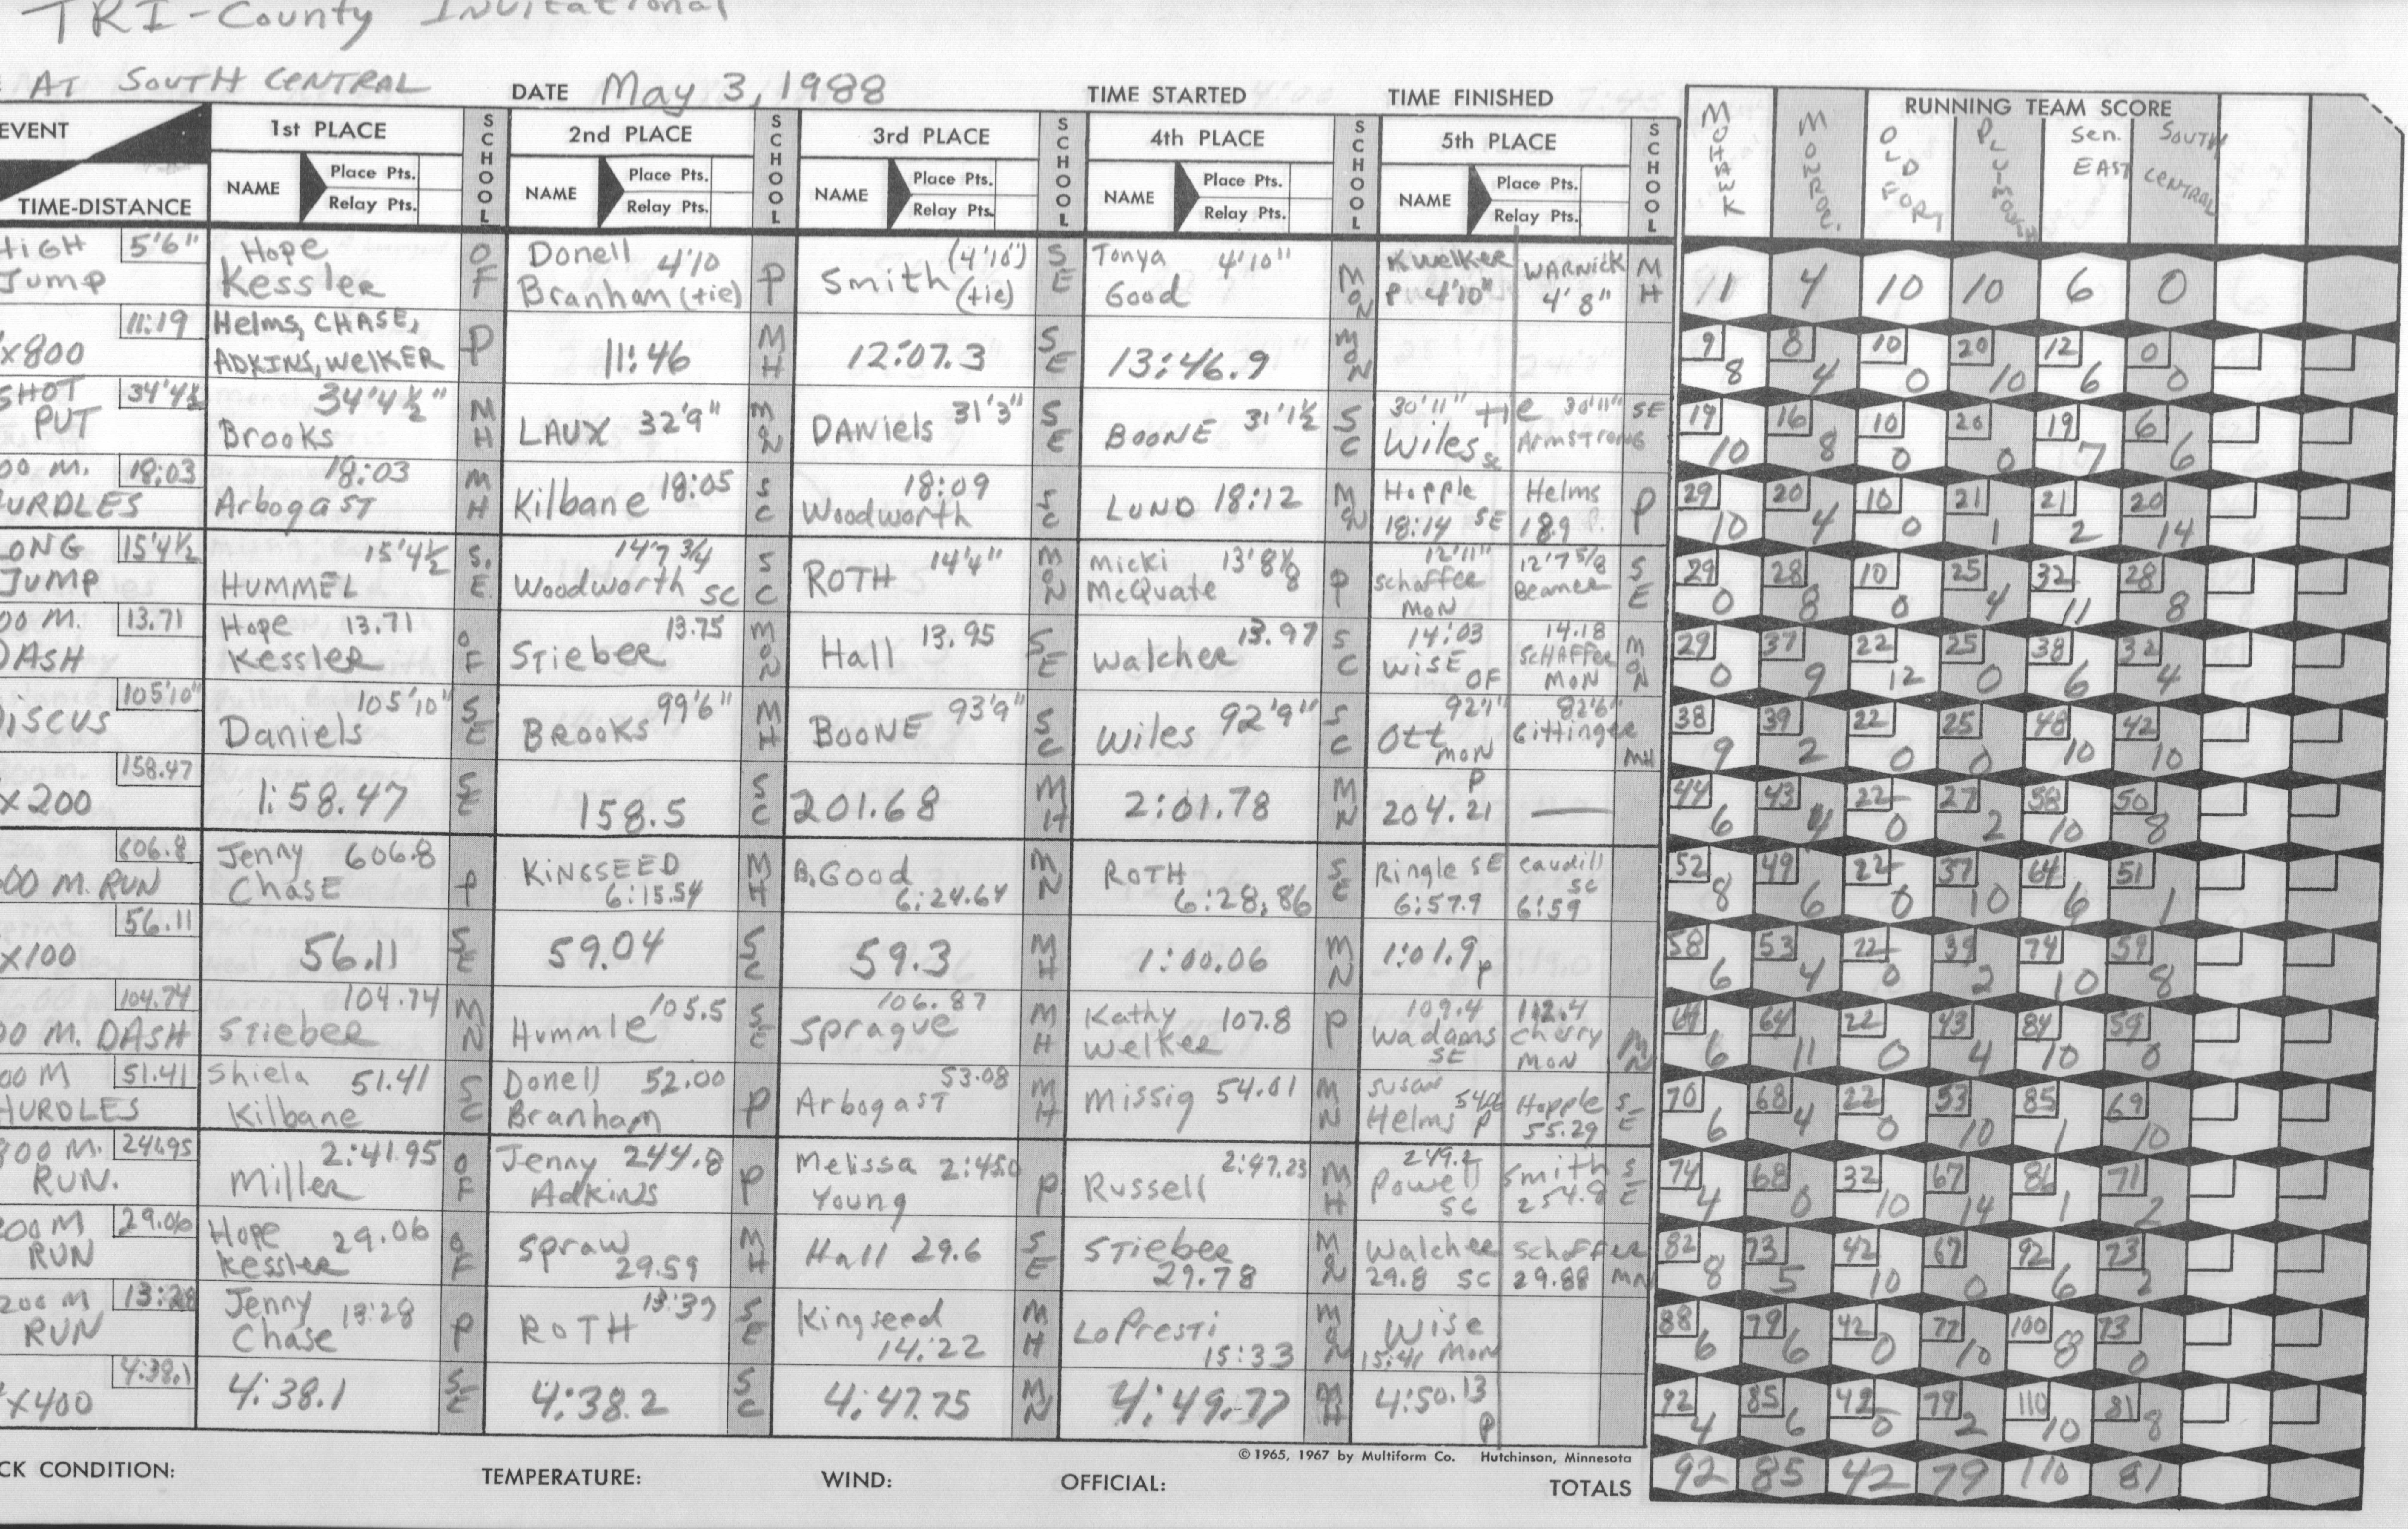 TRI-County Invitational
AT SOUTH CENTRAL DATE May 3, 1988 TIME STARTED TIME FINISHED
RUNNING TEAM SCORE
MOHAWK MONROE. OLD FORT PLYMOUTH Sen. EAST SOUTH CENTRAL
EVENT 1st PLACE SCHOOL 2nd PLACE SCHOOL 3rd PLACE SCHOOL 4th PLACE SCHOOL 5th PLACE SCHOOL
TIME-DISTANCE NAME Place Pts. Relay Pts. NAME Place Pts. Relay Pts. NAME Place Pts. Relay Pts. NAME Place Pts. Relay Pts. NAME Place Pts. Relay Pts.
HIGH Jump 5'6" Hope Kessler OF Donell Branham 4'10 (tie) P Smith (4'10") (tie) SE Tonya Good 4'10" MON K Welker P 4'10" WARNICK 4'8" MH 11 4 10 10 6 0
x800 11:19 Helms, CHASE, ADKINS, WELKER P 11:46 MH 12:07.3 SE 13:46.9 MON 9 8 8 4 10 0 20 10 12 6 0 0
SHOT PUT 34'4½ Brooks 34'4½" MH LAUX 32'9" MON DANIELS 31'3" SE BOONE 31'1½ SC 30'11" tie Wiles SC 30'11" ARMSTRONG SE 19 10 16 8 10 0 20 0 19 7 6 6
00 M. HURDLES 18:03 Arbogast 18:03 MH Kilbane 18:05 SC Woodworth 18:09 SC LUND 18:12 MON Hopple 18:14 SE Helms 18.9 P. P 29 10 20 4 10 0 21 1 21 2 20 14
LONG JUMP 15'4½ HUMMEL 15'4½ S.E. Woodworth 14'7 3/4 SC SC ROTH 14'4" MON Micki McQuate 13'8⅛ P Schaffer 12'11" MON Beamer 12'7 5/8 SE 29 0 28 8 10 0 25 4 32 11 28 8
00 M. DASH 13.71 Hope Kessler 13.71 OF STieber 13.75 MON Hall 13.95 SE Walcher 13.97 SC 14:03 WISE OF 14.18 SCHAFFER MON MON 29 0 37 9 22 12 25 0 38 6 32 4
DISCUS 105'10" Daniels 105'10" SE BROOKS 99'6" MH BOONE 93'9" SC Wiles 92'9" SC Ott 92'1" MON Gittinger 82'6" MH 38 9 39 2 22 0 25 0 48 10 42 10
x200 158.47 1:58.47 SE 158.5 SC 201.68 MH 2:01.78 MN P 204.21 — 44 6 43 4 22 0 27 2 58 10 50 8
00 M. RUN 606.8 Jenny Chase 606.8 P KINGSEED 6:15.54 MH B. Good 6:24.64 MN ROTH 6:28.86 SE Ringle SE 6:57.9 Caudill SC 6:59 52 8 49 6 22 0 37 10 64 6 51 1
x100 56.11 56.11 SE 59.04 SC 59.3 MH 1:00.06 MN 1:01.9 P 58 6 53 4 22 0 39 2 74 10 59 8
00 M. DASH 104.74 STieber 104.74 MN Hummle 105.5 SE Sprague 106.87 MH Kathy Welker 107.8 P 109.4 Wadams SE 112.4 Cherry MON MN 64 6 64 11 22 0 43 4 84 10 59 0
00 M HURDLES 51.41 Shiela Kilbane 51.41 SC Donell Branham 52.00 P Arbogast 53.08 MH Missig 54.01 MN Susan Helms P Hopple 55.29 SE 70 6 68 4 22 0 53 10 85 1 69 10
800 M. RUN. 241.95 Miller 2:41.95 OF Jenny Adkins 244.8 P Melissa Young 2:45.0 P Russell 2:47.23 MH 249.2 Powell SC Smith 254.8 SE 74 4 68 0 32 10 67 14 86 1 71 2
200 M RUN 29.06 Hope Kessler 29.06 OF Spraw 29.59 MH Hall 29.6 SE STieber 29.78 MN Walcher 29.8 SC Schaffer 29.88 MN 82 8 73 5 42 10 67 0 92 6 73 2
200 M RUN 13:28 Jenny Chase 13:28 P ROTH 13:39 SE Kingseed 14:22 MH LoPresti 15:33 MON Wise 15:41 MON 88 6 79 6 42 0 77 10 100 8 73 0
x400 4:38.1 4:38.1 SE 4:38.2 SC 4:47.75 MN 4:49.77 MH 4:50.13 P 92 4 85 6 42 0 79 2 110 10 81 8
©1965, 1967 by Multiform Co. Hutchinson, Minnesota
CK CONDITION: TEMPERATURE: WIND: OFFICIAL: TOTALS 92 85 42 79 110 81